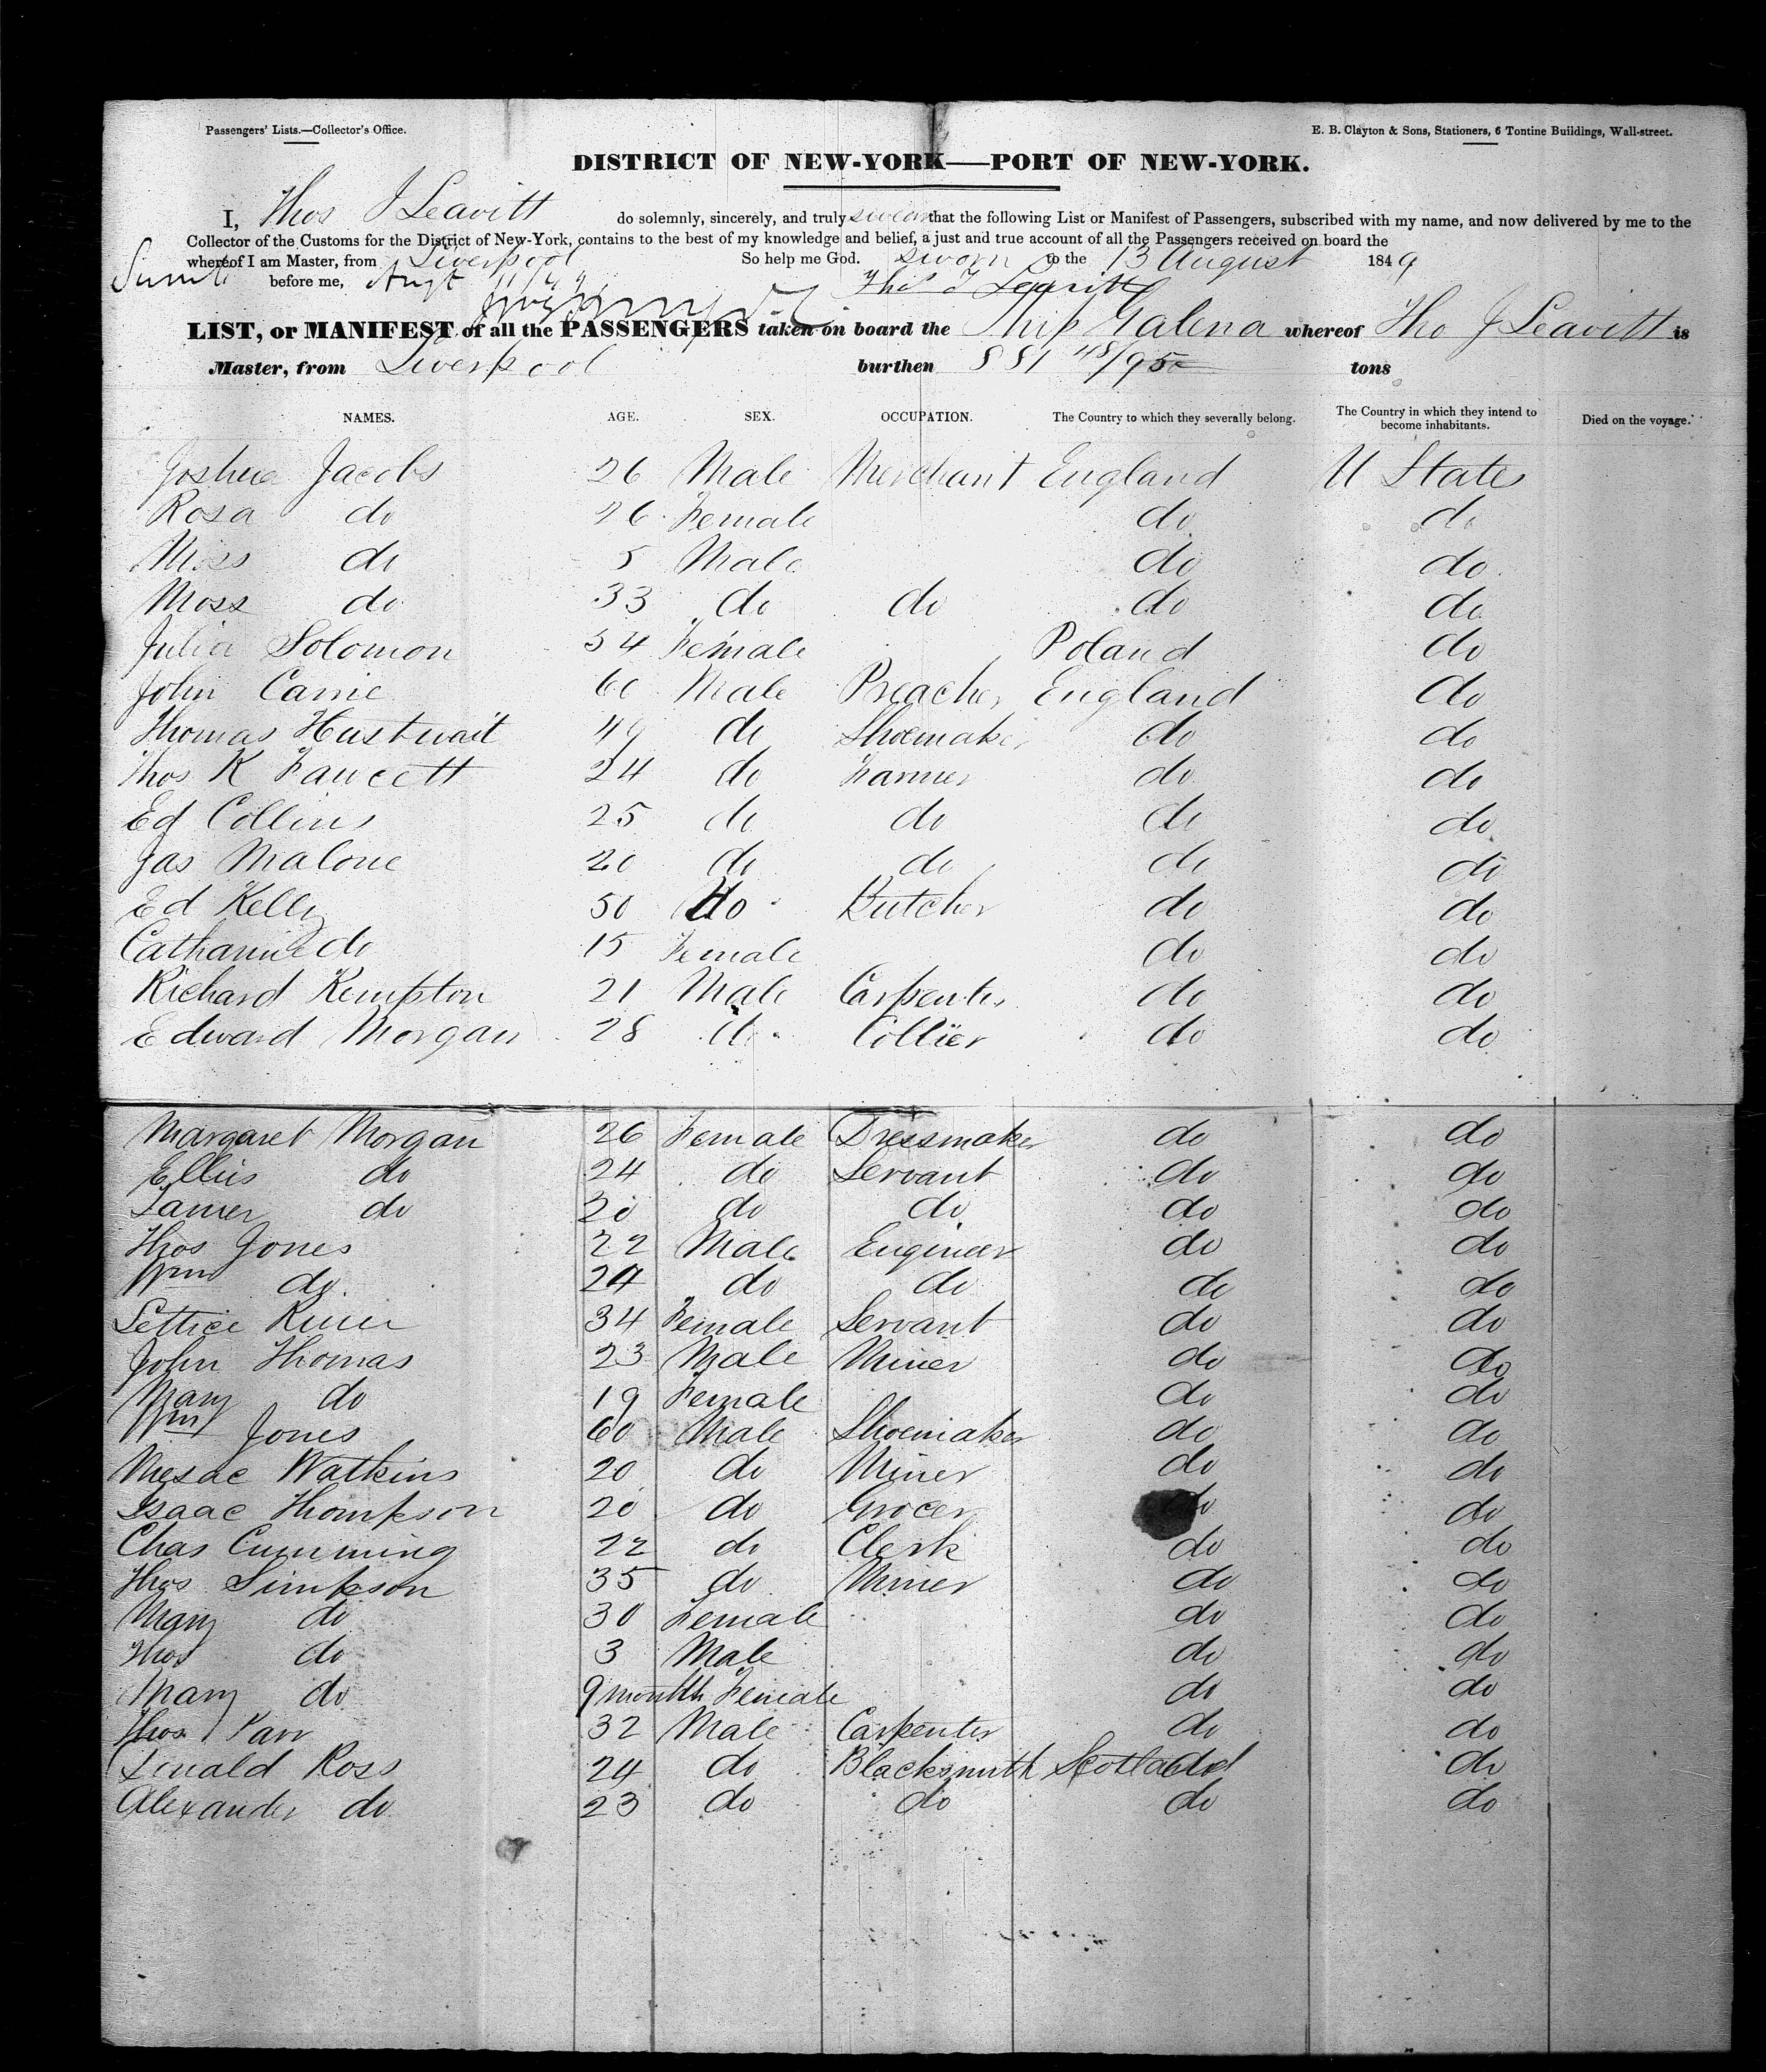 Passengers' Lists.—Collector's Office.
E. B. Clayton & Sons, Stationers, 6 Tontine Buildings, Wall-street.
DISTRICT OF NEW-YORK—PORT OF NEW-YORK.
I, Thos J Leavitt do solemnly, sincerely, and truly swear that the following List or Manifest of Passengers, subscribed with my name, and now delivered by me to the
Collector of the Customs for the District of New-York, contains to the best of my knowledge and belief, a just and true account of all the Passengers received on board the
whereof I am Master, from Liverpool So help me God. sworn to the 13 August 1849
before me, Augt Thos J Leavitt
LIST, or MANIFEST of all the PASSENGERS taken on board the Ship Galena whereof Tho J Leavitt is
Master, from Liverpool burthen 881 48/95 tons
NAMES. AGE. SEX. OCCUPATION. The Country to which they severally belong. The Country in which they intend to become inhabitants. Died on the voyage.
Joshua Jacobs 26 Male Merchant England U States
Rosa do 26 Female do do
Miss do 5 Male do do
Moss do 33 do do do do
Julia Solomon 54 Female Poland do
John Carrie 60 Male Preacher England do
Thomas Hustwait 49 do Shoemaker do do
Thos K Fawcett 24 do Farmer do do
Ed Collins 25 do do do do
Jas Malone 20 do do do do
Ed Kelly 50 do Butcher do do
Catharine do 15 Female do do
Richard Kempton 21 Male Carpenter do do
Edward Morgan 28 do Collier do do
Margaret Morgan 26 Female Dressmaker do do
Ellis do 24 do Servant do do
do 20 do do do do
Thos Jones 22 Male Engineer do do
Wm do 24 do do do do
Lettice 34 Female Servant do do
John Thomas 23 Male Miner do do
Mary do 19 Female do do
Wm Jones 60 Male Shoemaker do do
Mesac Watkins 20 do Miner do do
Isaac Thompson 20 do Grocer do do
Chas Cumming 22 do Clerk do do
Thos Simpson 35 do Miner do do
Mary do 30 Female do do
Thos do 3 Male do do
Mary do 9 month Female do do
Thos Parr 32 Male Carpenter do do
Donald Ross 24 do Blacksmith Scotland do
Alexander do 23 do do do do